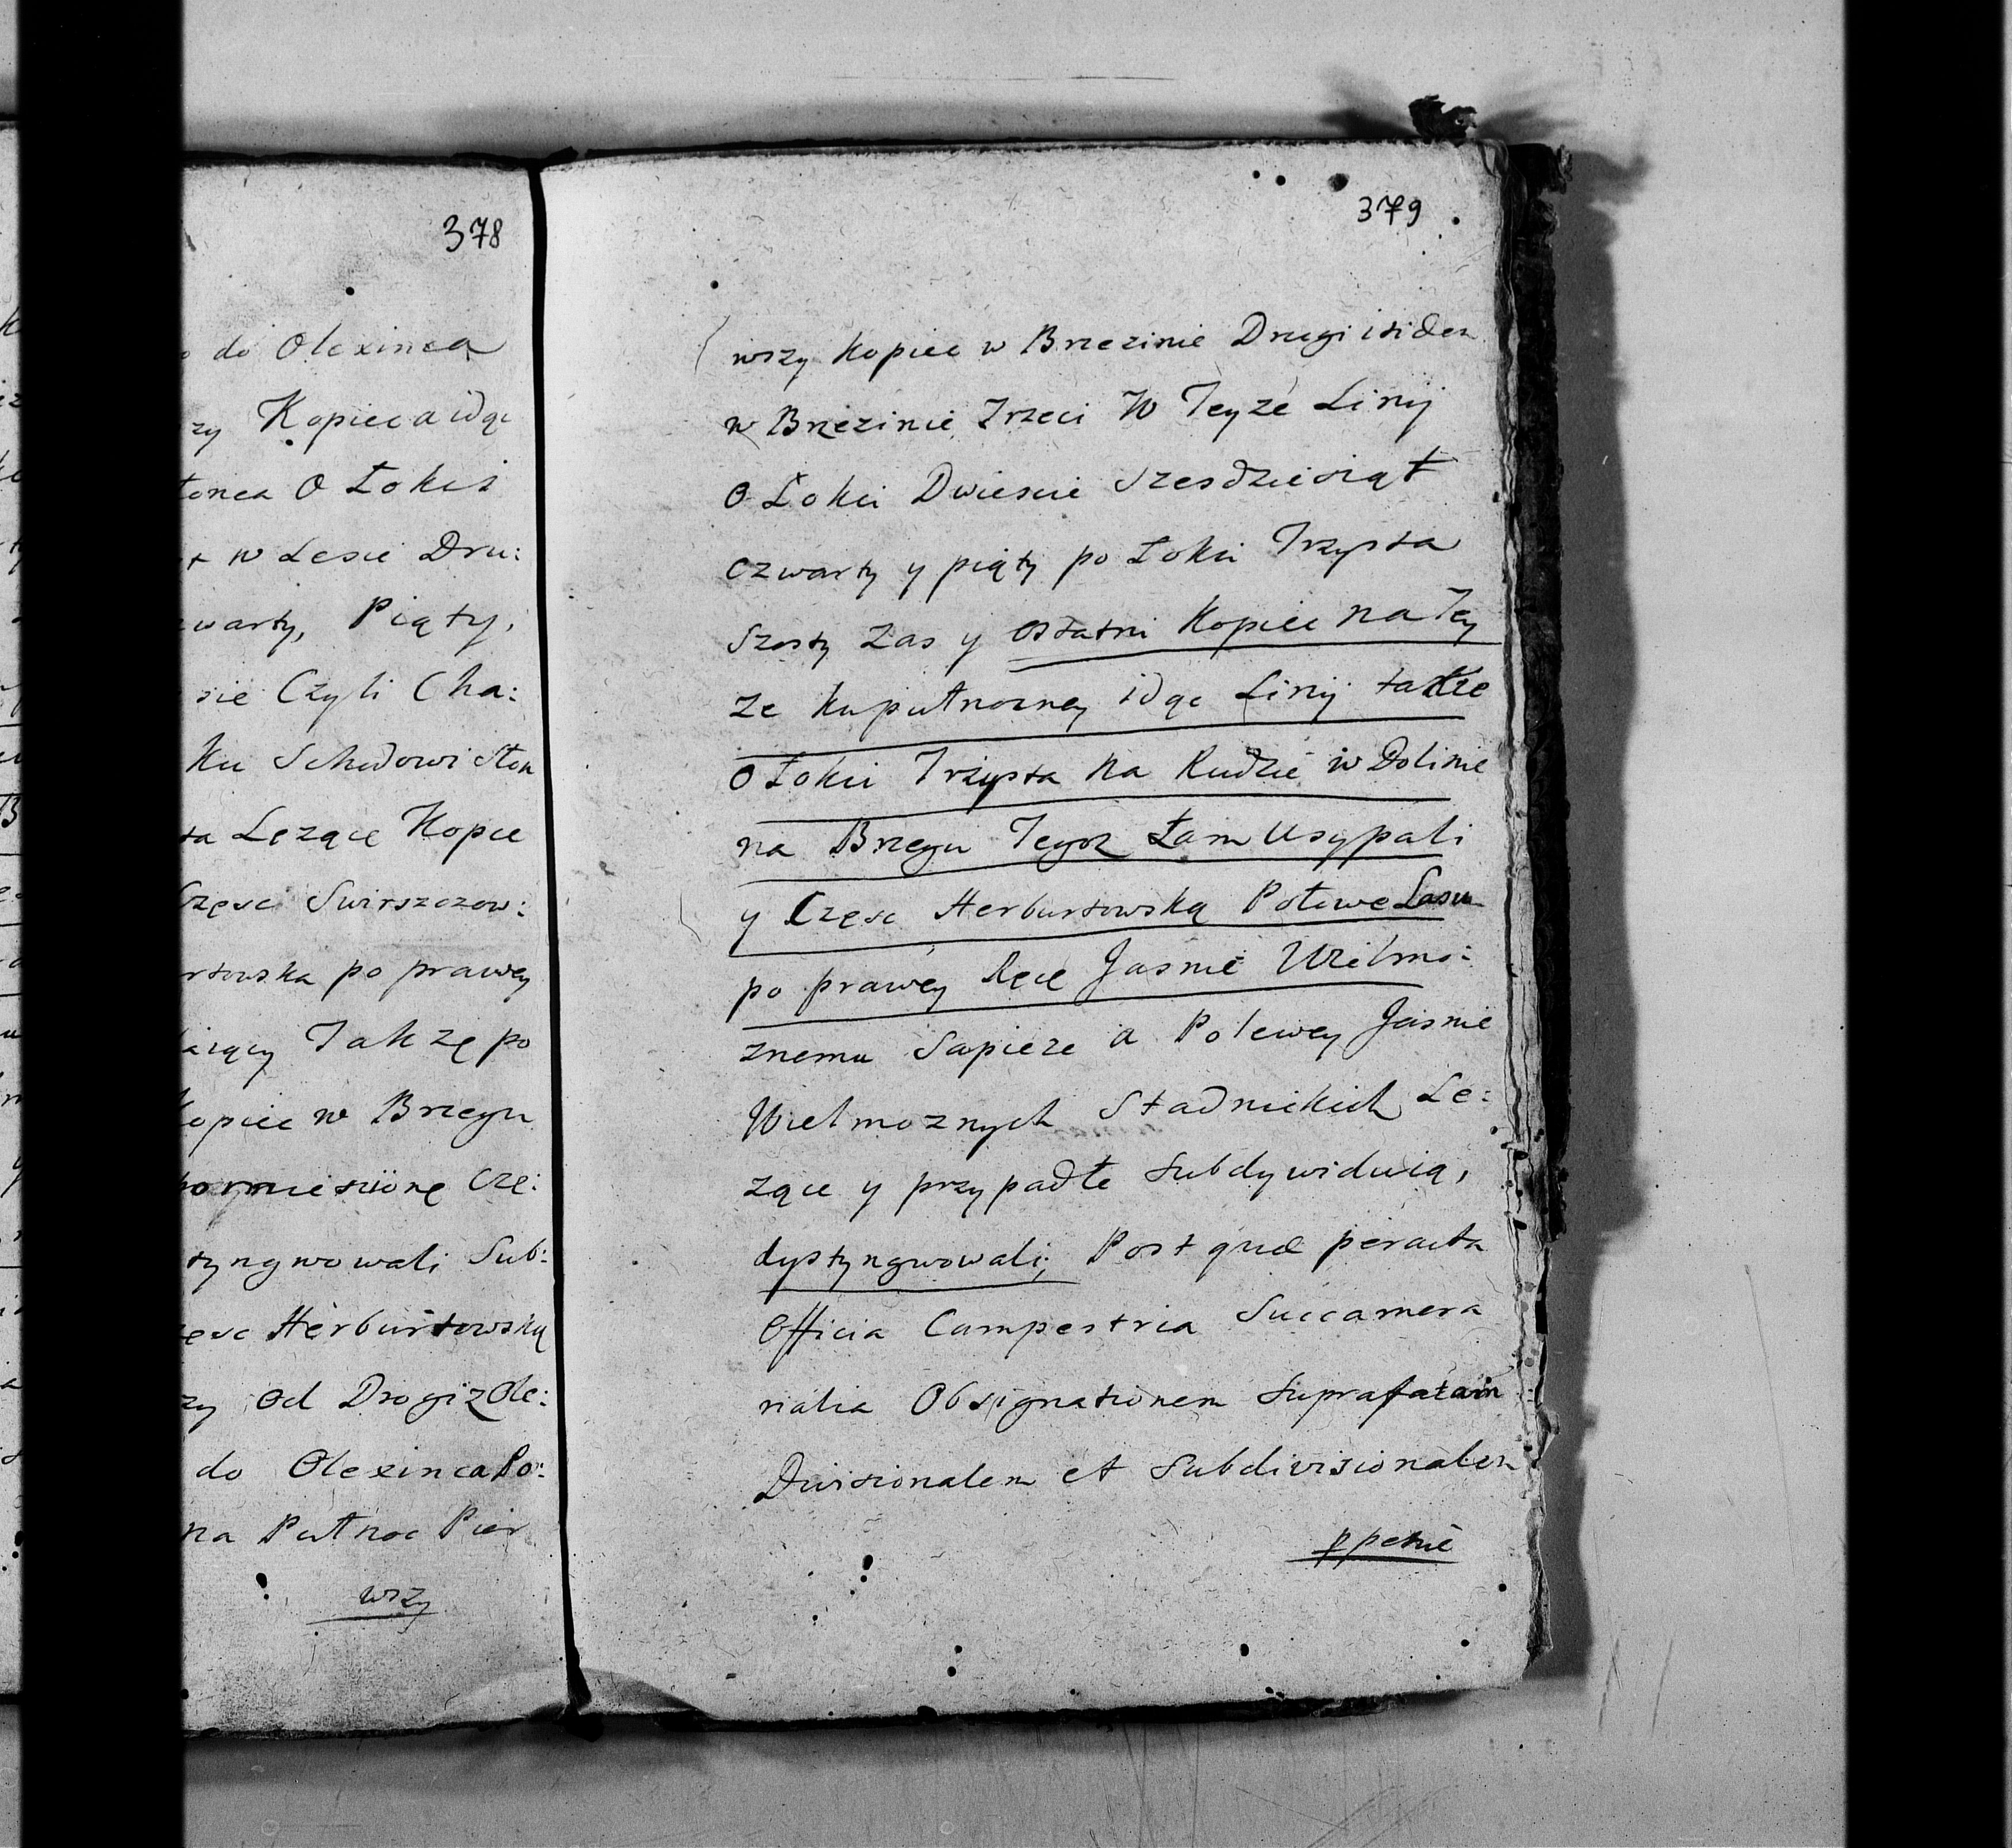 378
do Olexinca
zy Kopieca idąc
tonca O Łokci
w Lesie Dru:
warty, Piąty,
sie Czyli Cha:
Ku Schodowi Słon
ta Lezące Kopce
Częsc Swirszczow:
rtowska po prawey
Takze po
Kopiec w Brzegu
Czę:
tyngwowali Sub:
zęsc Herburtowską
zy od Drogi z Ole:
do Olexinca Po:
na Pułnoc Pier
wszy
379
wszy Kopiec w Brzezinie Drugi
w Brzezinie Trzeci W Teyze Linij
O Łokci Dwiescie Szesdziesiąt
Czwarty y piąty po Łokci Trzysta
Szosty Zas y Ostatni Kopiec na Tey
ze ku pułnocney idąc Linij także
O Łokci Trzysta Na Rudzie w Dolinie
na Brzegu Tegoz Łam Usypali
y Częsc Herburtowską Połowe Lasu
po prawey Ręce Jasnie Wielmo:
znemu Sapieze a Po lewey Jasnie
Wielmoznych Stadnickich Le:
zące y przypadłe Subdywiduią,
dystyngwowali; Post quæ peracta
Officia Campestria Succamera
rialia Obsignationem Suprafatam
Divisionalem et Subdivisionalem